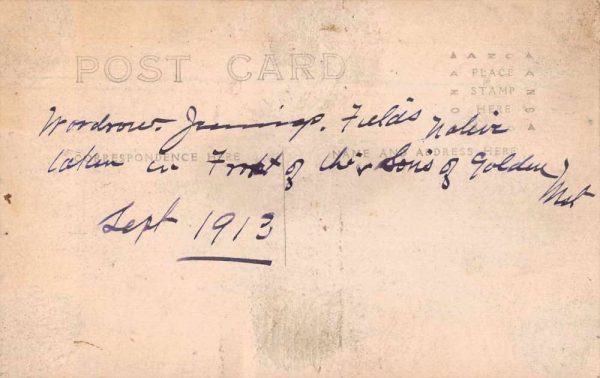 POST CARD
ANSCO
PLACE
STAMP
HERE
Woodrow. Jennings. Fields Native
CORRESPONDENCE HERE
NAME AND ADDRESS HERE
taken in Front of the Sons of Golden West
Sept 1913